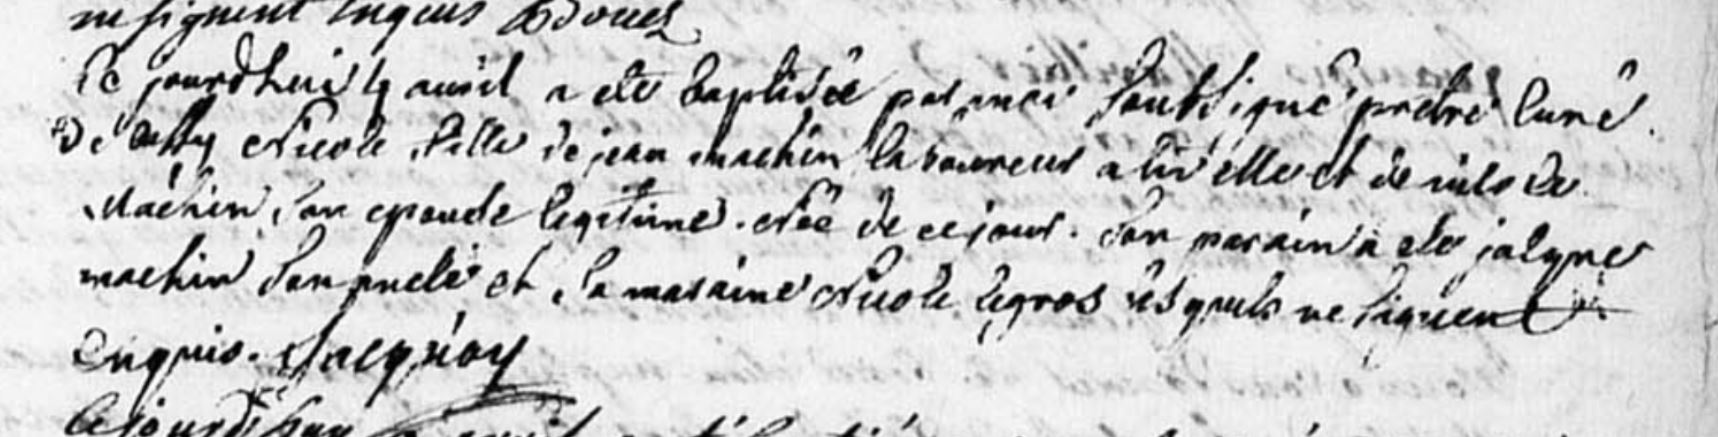 ne signent enquis
Ce jourdhui 4 avril a ete baptisée par moi soubsigné pretre curé
de Nicole fille de jean machin laboureur a elle et de
Machin son epouse legitime. Née de ce jour. son parain a ete jalque
machin son et sa maraine Nicole legros lesquels ne signent
enquis. Jacquioy
Ce jourdhuy avril